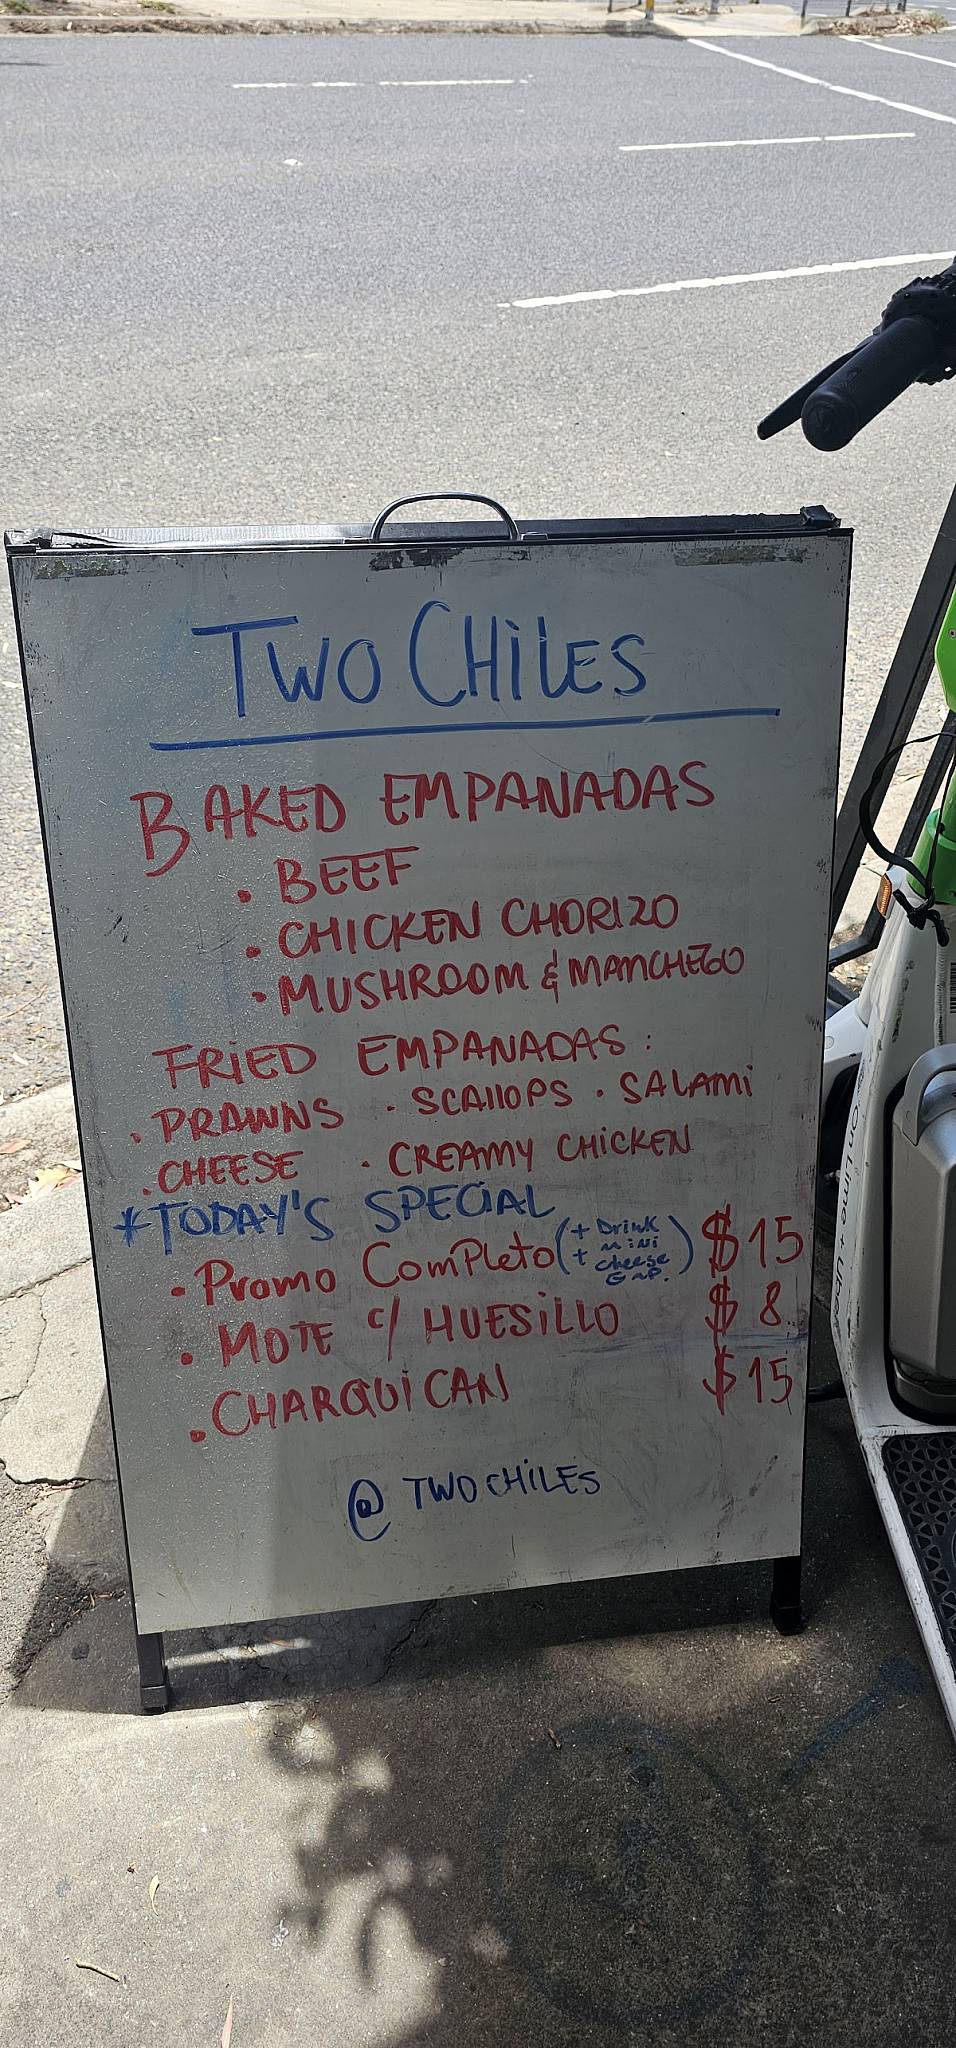 TWO CHiLES
BAKED EMPANADAS
• BEEF
• CHICKEN CHORIZO
• MUSHROOM & MANCHEGO
FRiED EMPANADAS:
• PRAWNS • SCAllOPS • SALAMi
• CHEESE • CREAMY CHICKEN
*TODAY'S SPECIAL
• Promo Completo (+ Drink + mini cheese Emp.) $15
• MOTE c/ HUESiLLO $8
• CHARQUiCAN $15
@TWOCHiLES
on Lime + Uber